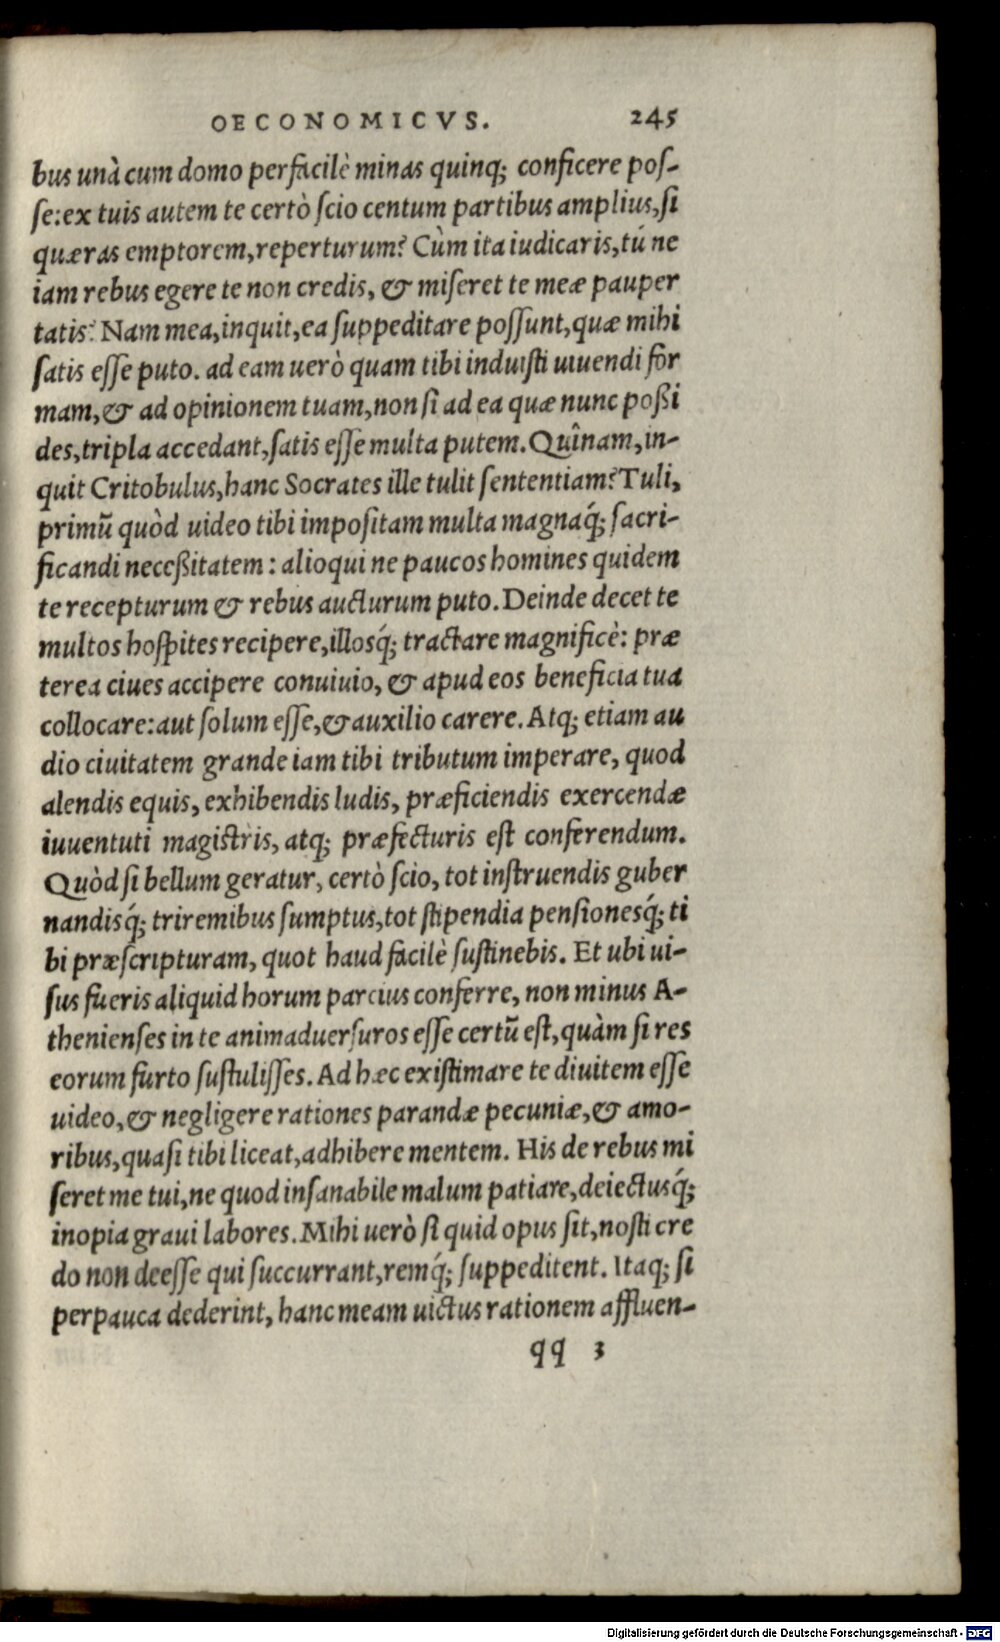 OECONOMICVS. 245
bus unà cum domo perfacilè minas quinq; conficere poſ-
ſe: ex tuis autem te certò ſcio centum partibus amplius, ſi
quæras emptorem, reperturum? Cùm ita iudicaris, tú ne
iam rebus egere te non credis, & miſeret te meæ pauper
tatis? Nam mea, inquit, ea ſuppeditare poſſunt, quæ mihi
ſatis eſſe puto. ad eam uerò quam tibi induiſti uiuendi for
mam, & ad opinionem tuam, non ſi ad ea quæ nunc poßi
des, tripla accedant, ſatis eſſe multa putem. Quînam, in-
quit Critobulus, hanc Socrates ille tulit ſententiam? Tuli,
primũ quòd uideo tibi impoſitam multa magnaq́; ſacri-
ficandi neceßitatem: alioqui ne paucos homines quidem
te recepturum & rebus aucturum puto. Deinde decet te
multos hoſpites recipere, illosq́; tractare magnificè: præ
terea ciues accipere conuiuio, & apud eos beneficia tua
collocare: aut ſolum eſſe, & auxilio carere. Atq; etiam au
dio ciuitatem grande iam tibi tributum imperare, quod
alendis equis, exhibendis ludis, præficiendis exercendæ
iuuentuti magiſtris, atq; præfecturis eſt conferendum.
Quòd ſi bellum geratur, certò ſcio, tot inſtruendis guber
nandisq́; triremibus ſumptus, tot ſtipendia penſionesq́; ti
bi præſcripturam, quot haud facilè ſuſtinebis. Et ubi ui-
ſus fueris aliquid horum parcius conferre, non minus A-
thenienſes in te animaduerſuros eſſe certũ eſt, quàm ſi res
eorum furto ſuſtuliſſes. Ad hæc exiſtimare te diuitem eſſe
uideo, & negligere rationes parandæ pecuniæ, & amo-
ribus, quaſi tibi liceat, adhibere mentem. His de rebus mi
ſeret me tui, ne quod inſanabile malum patiare, deiectusq́;
inopia graui labores. Mihi uerò ſi quid opus ſit, noſti cre
do non deeſſe qui ſuccurrant, remq́; ſuppeditent. Itaq; ſi
perpauca dederint, hanc meam uictus rationem affluen-
qq 3
Digitalisierung gefördert durch die Deutsche Forschungsgemeinschaft - DFG